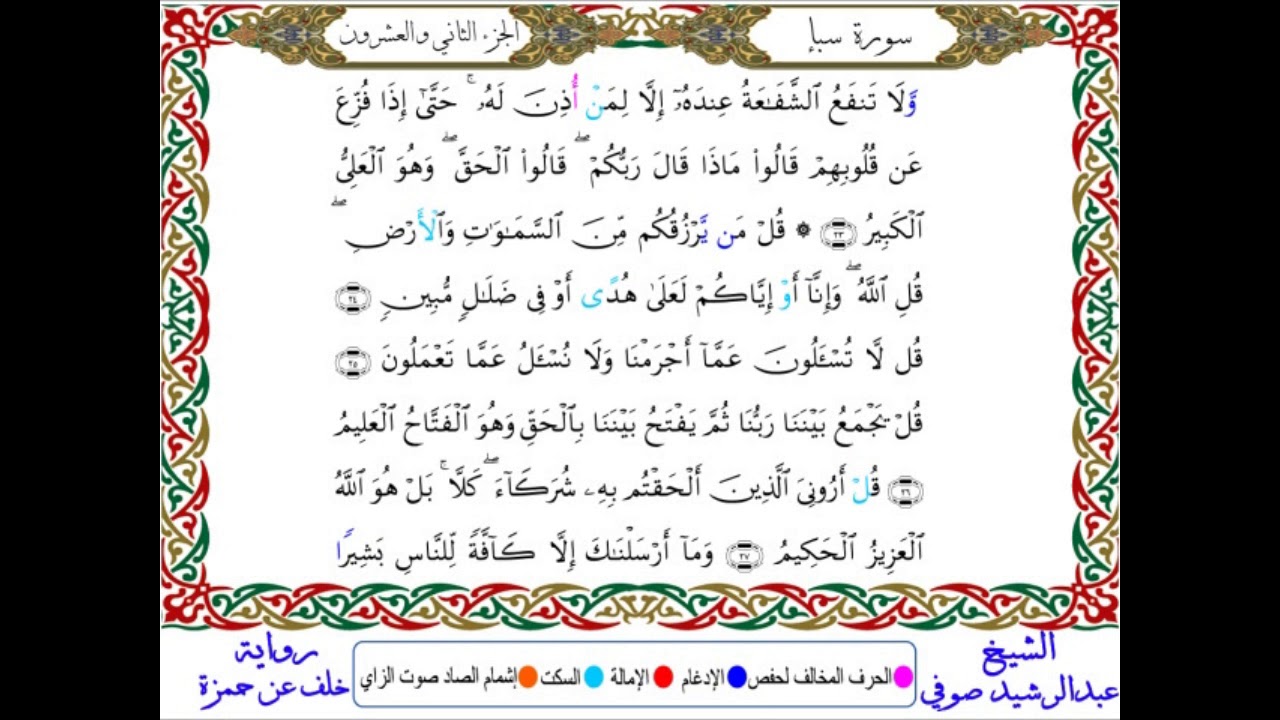 سورة سبإ
الجزء الثاني والعشرون
وَّلَا تَنفَعُ ٱلشَّفَٰعَةُ عِندَهُۥٓ إِلَّا لِمَنۡ أُذِنَ لَهُۥۚ حَتَّىٰٓ إِذَا فُزِّعَ
عَن قُلُوبِهِمۡ قَالُواْ مَاذَا قَالَ رَبُّكُمۡۖ قَالُواْ ٱلۡحَقَّۖ وَهُوَ ٱلۡعَلِيُّ
ٱلۡكَبِيرُ ٢٣ ۞ قُلۡ مَن يَّرۡزُقُكُم مِّنَ ٱلسَّمَٰوَٰتِ وَٱلۡأَرۡضِۖ
قُلِ ٱللَّهُۖ وَإِنَّآ أَوۡ إِيَّاكُمۡ لَعَلَىٰ هُدًى أَوۡ فِي ضَلَٰلٖ مُّبِينٖ ٢٤
قُل لَّا تُسۡـَٔلُونَ عَمَّآ أَجۡرَمۡنَا وَلَا نُسۡـَٔلُ عَمَّا تَعۡمَلُونَ ٢٥
قُلۡ يَجۡمَعُ بَيۡنَنَا رَبُّنَا ثُمَّ يَفۡتَحُ بَيۡنَنَا بِٱلۡحَقِّ وَهُوَ ٱلۡفَتَّاحُ ٱلۡعَلِيمُ
٢٦ قُلۡ أَرُونِيَ ٱلَّذِينَ أَلۡحَقۡتُم بِهِۦ شُرَكَآءَۖ كَلَّاۚ بَلۡ هُوَ ٱللَّهُ
ٱلۡعَزِيزُ ٱلۡحَكِيمُ ٢٧ وَمَآ أَرۡسَلۡنَٰكَ إِلَّا كَآفَّةٗ لِّلنَّاسِ بَشِيرٗا
الشيخ
عبدالرشيد صوفي
الحرف المخالف لحفص الإدغام الإمالة السكت إشمام الصاد صوت الزاي
رواية
خلف عن حمزة